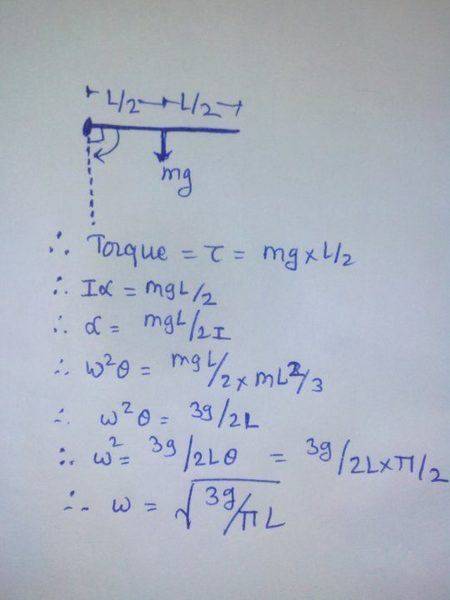 L/2 L/2
mg
∴ Torque = τ = mg × L/2
∴ Iα = mgL/2
∴ α = mgL/2I
∴ ω²θ = mgL/2 × mL²/3
∴ ω²θ = 3g/2L
∴ ω² = 3g/2Lθ = 3g/2L×π/2
∴ ω = √3g/πL